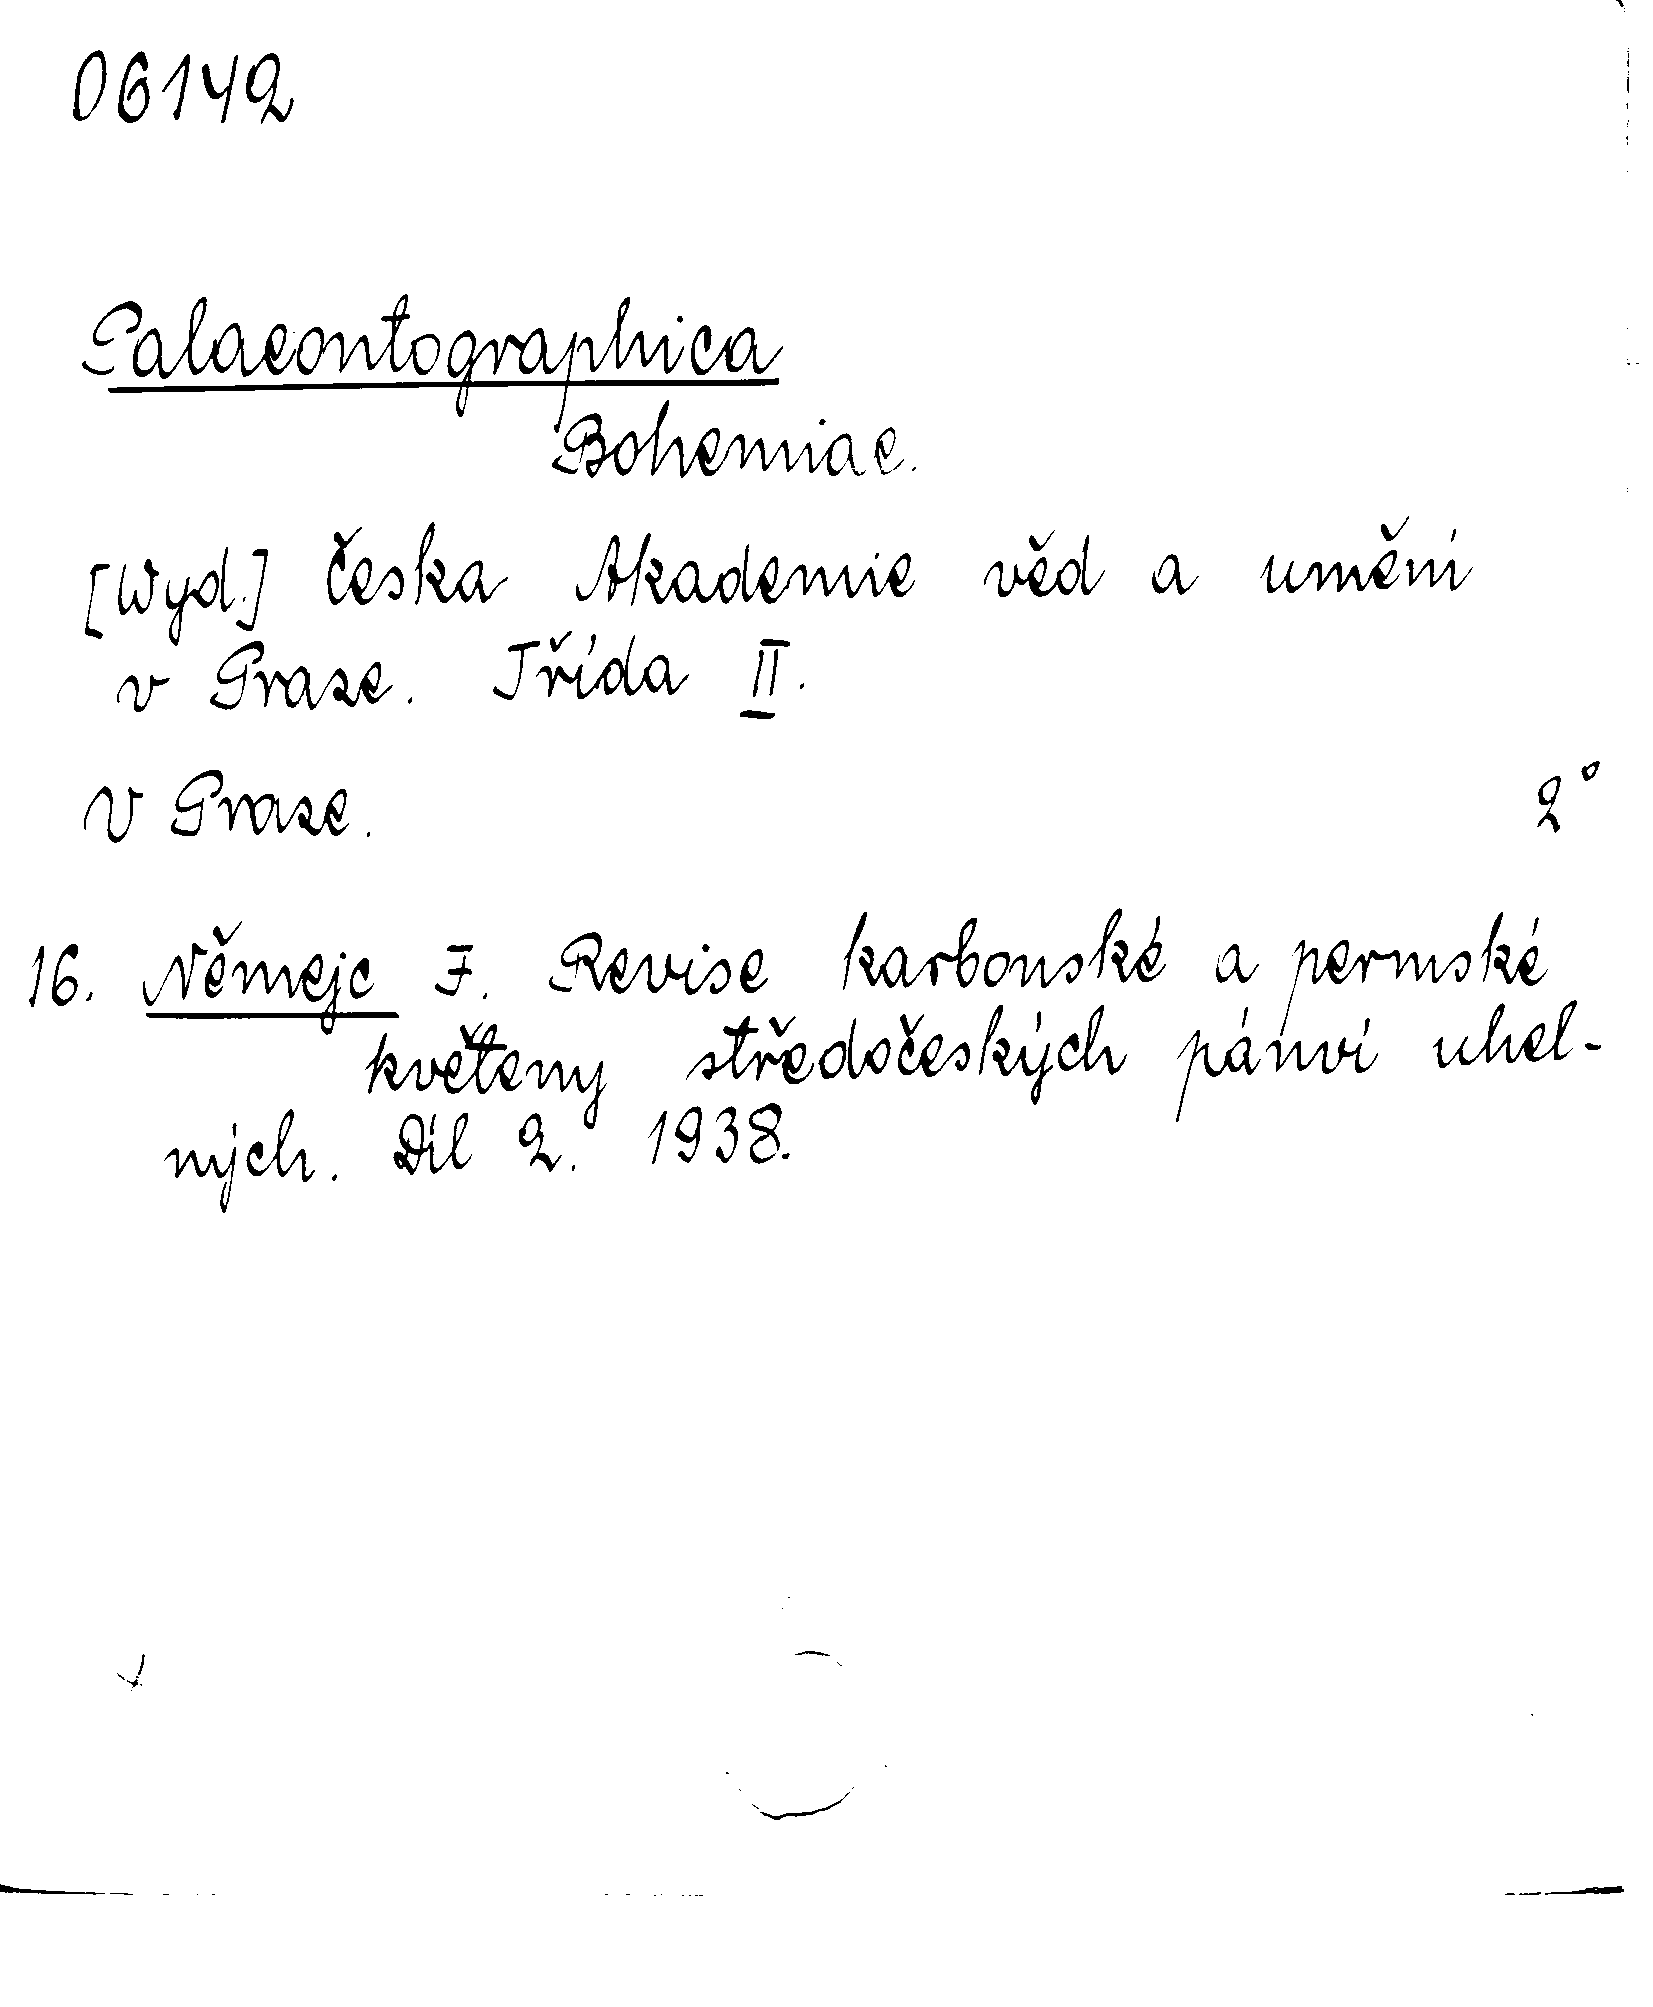 06142
Palaeontographica
Bohemiae.
[Wyd.] Česka Akademie věd a uměni
v Praze. Třída II.
V Praze. 2°
16. Němejc F. Revise karbonské a permské
květeny středočeských pánví uhel-
ných. Díl 2. 1938.